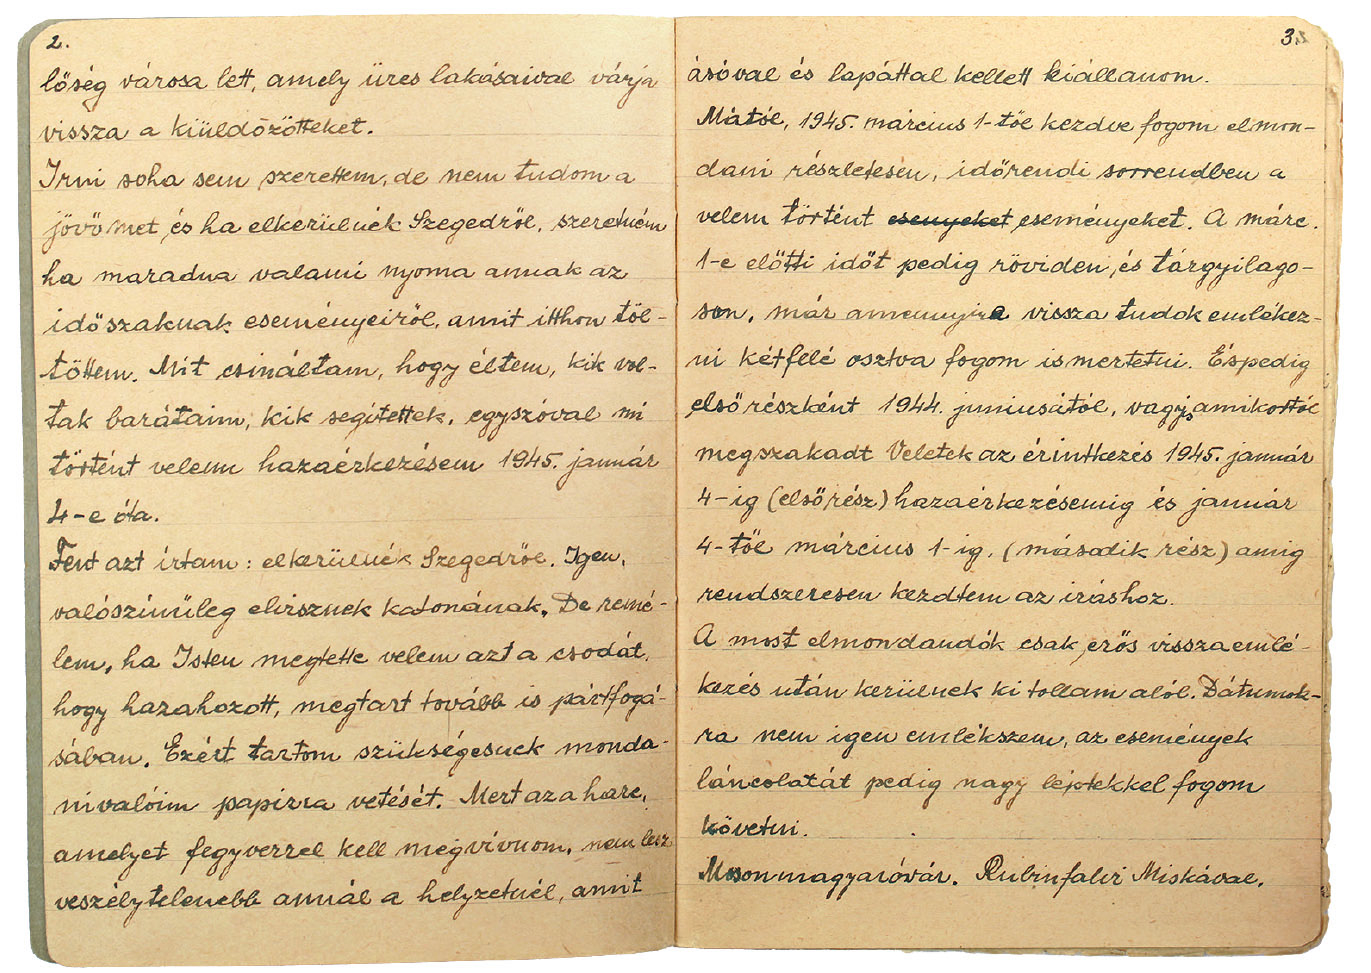 2.
lőség városa lett, amely üres lakásaival várja
vissza a kiüldözötteket.
Irni soha sem szerettem, de nem tudom a
jövőmet és ha elkerülnék Szegedről, szeretném
ha maradna valami nyoma annak az
időszaknak eseményeiről, amit itthon töl-
töttem. Mit csináltam, hogy éltem, kik vol-
tak barátaim, kik segítettek, egyszóval mi
történt velem hazaérkezésem 1945. január
4-e óta.
Fent azt írtam: elkerülnék Szegedről. Igen,
valószinüleg elvisznek katonának. De remé-
lem, ha Isten megtette velem azt a csodát,
hogy hazahozott, megtart tovább is pártfogá-
sában. Ezért tartom szükségesnek monda-
nivalóim papirra vetését. Mert az a harc,
amelyet fegyverrel kell megvívnom, nem lesz
veszélytelenebb annál a helyzetnél, amit
3.
ásóval és lapáttal kellett kiállanom.
Mától, 1945. március 1-től kezdve fogom elmon-
dani részletesen, időrendi sorrendben a
velem történt esenyeket eseményeket. A márc.
1-e előtti időt pedig röviden, és tárgyilago-
son, már amennyire vissza tudok emlékez-
ni kétfelé osztva fogom ismertetni. Éspedig
első részként 1944. juniusától, vagy amikortól
megszakadt Veletek az érintkezés 1945. január
4-ig (első rész) hazaérkezésemig és január
4-től március 1-ig, (második rész) amig
rendszeresen kezdtem az iráshoz.
A most elmondandók csak erős visszaemlé-
kezés után kerülnek ki tollam alól. Dátumok-
ra nem igen emlékszem, az események
láncolatát pedig nagy léptekkel fogom
követni.
Mosonmagyaróvár. Rubinfalvi Miskával.